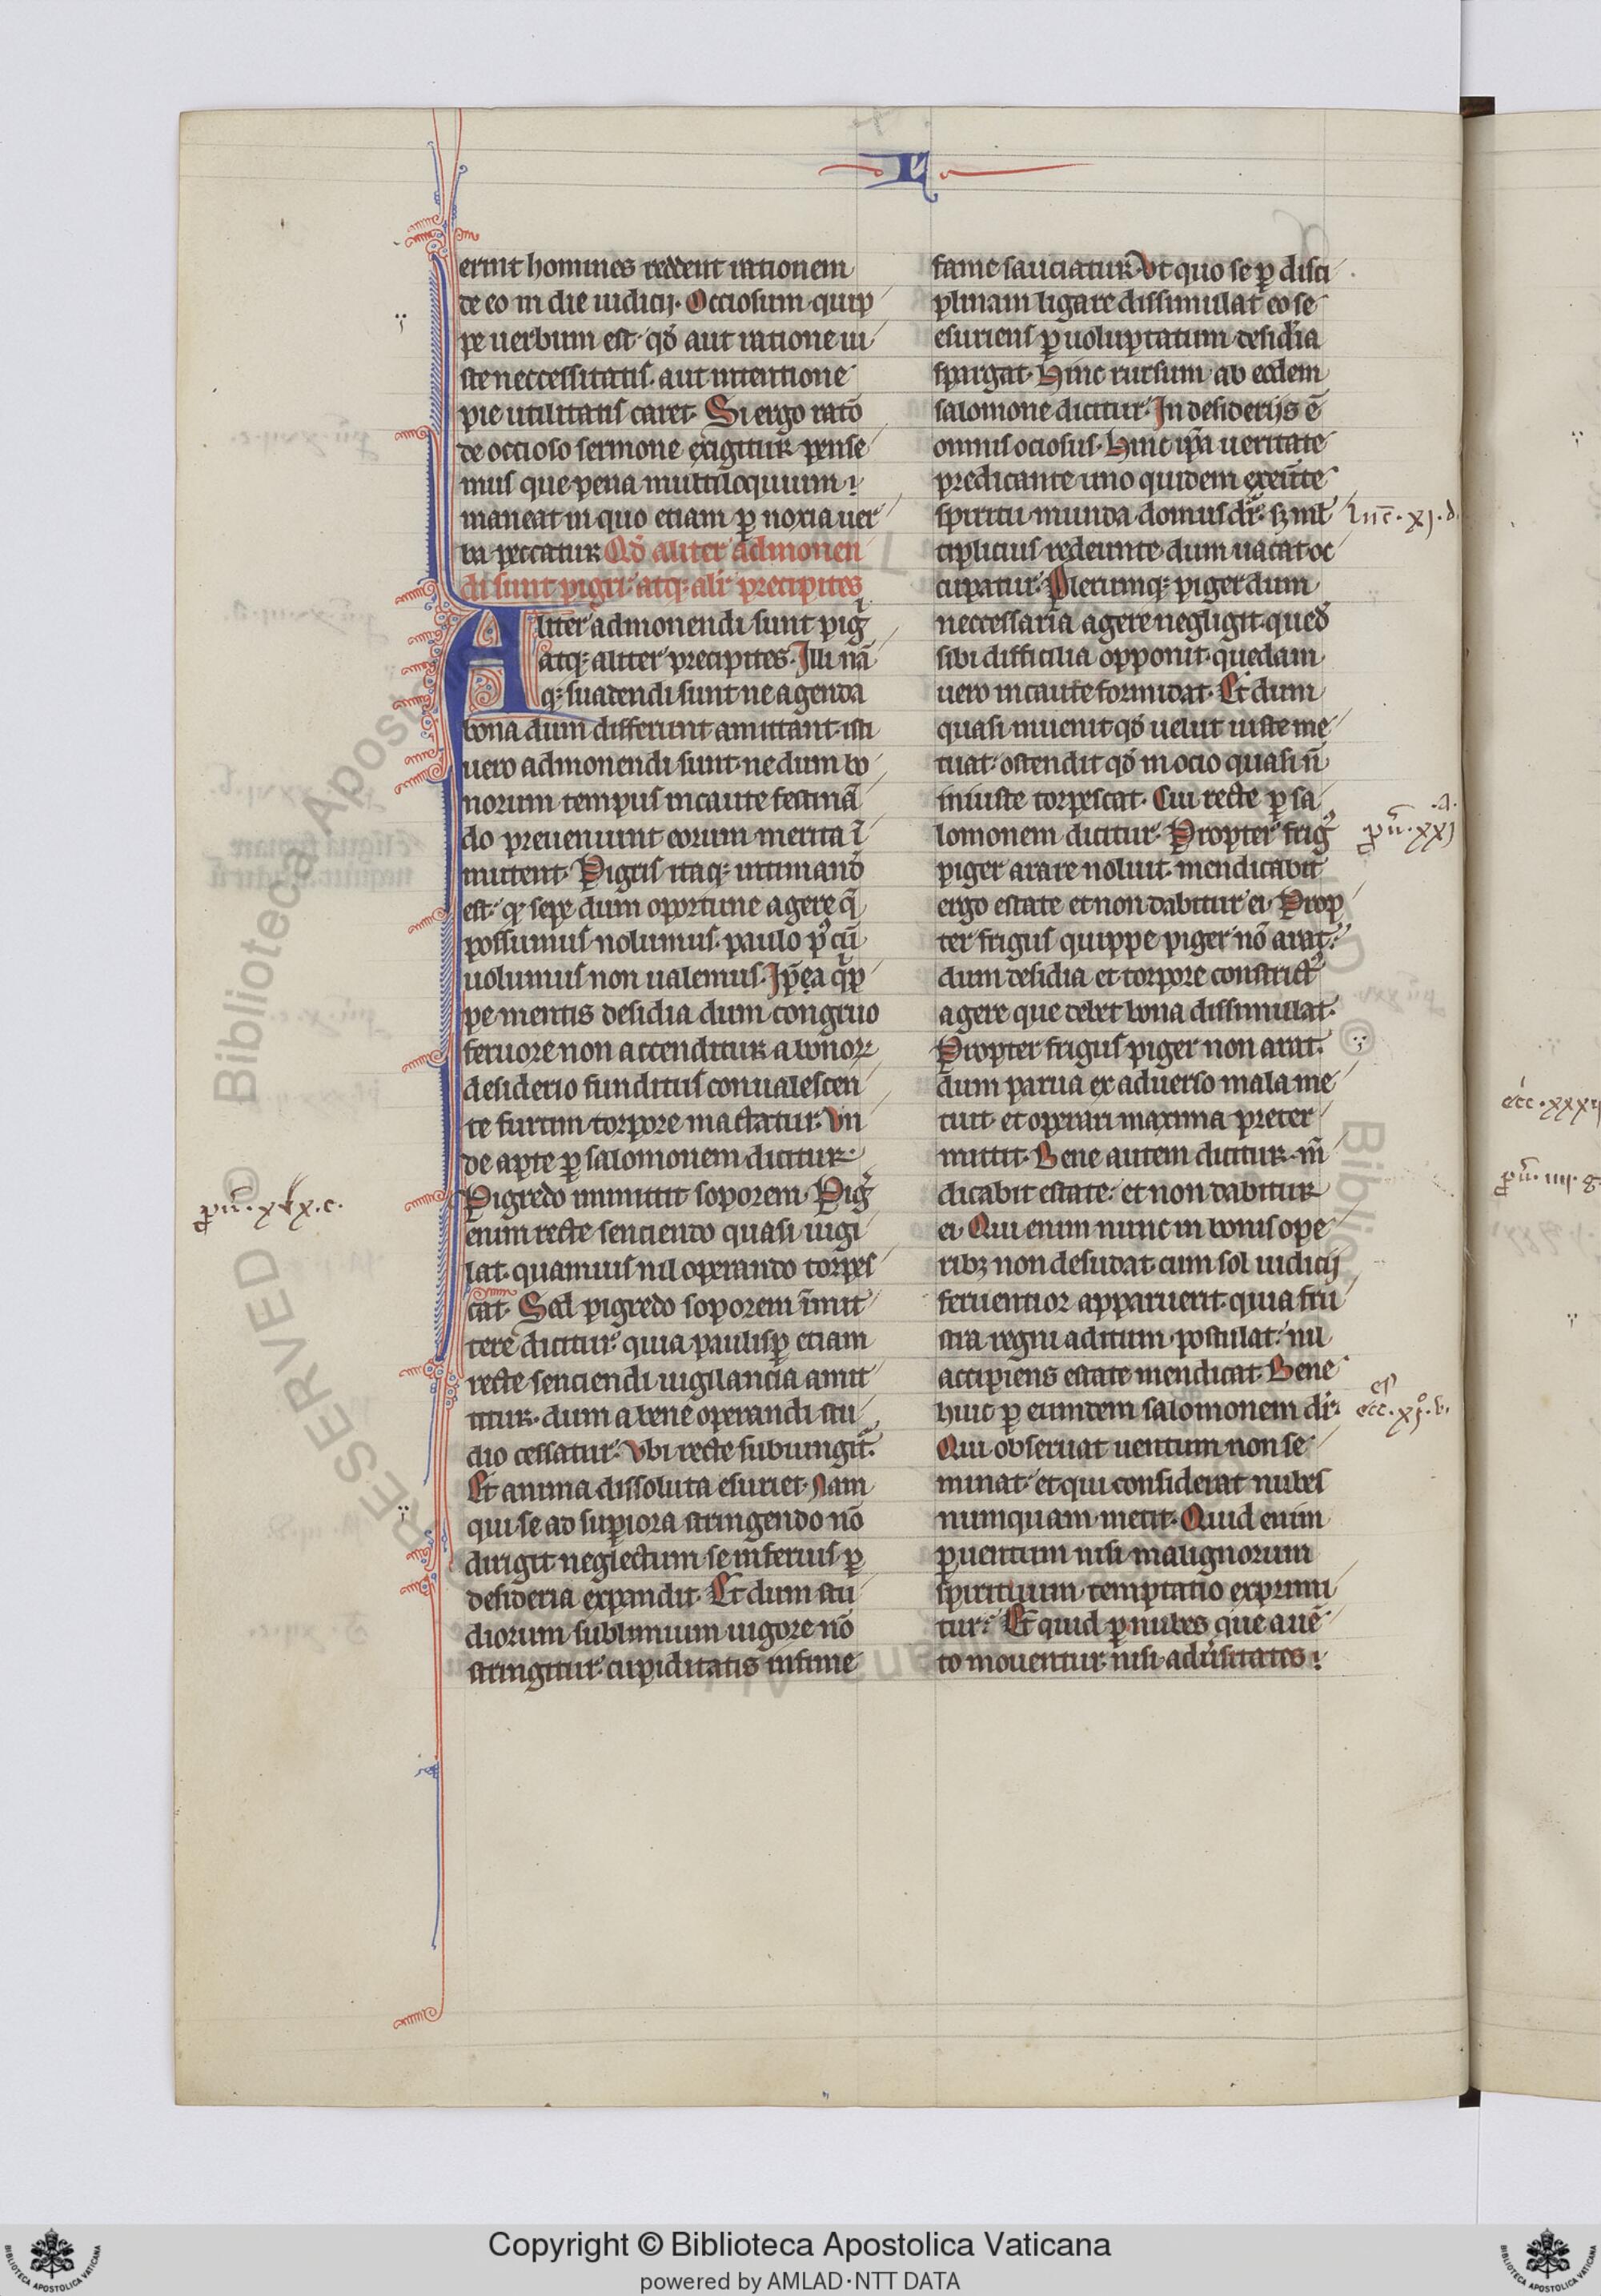 L
erint homines reddent rationem
de eo in die iudicij. Occiosum quip
pe uerbum est qd̓ aut ratione iu
ste neccessitatis. aut intentione
pie utilitatis caret. Si ergo ratō
de occioso sermone exigitur pense
mus que pena multiloquium
maneat in quo etiam ꝑ noxia uer
ba peccatur Qd̓ aliter admonen
di sunt pigri atqꝫ alit̓ precipites
Aliter admonendi sunt pig̓
atqꝫ aliter precipites. Illi nā
qꝫ suadendi sunt ne agenda
bona dum differunt amittant. isti
uero admonendi sunt. ne dum bo
norum tempus incaute festinā
do preueniunt eorum merita ī
mutent. Pigris itaqꝫ intimand̓
est. qꝫ sepe dum oportune agere q̄
possumus nolumus. paulo p̓ cū
uolumus non ualemus. Ip̄ea q̓p
pe mentis desidia dum congruo
feruore non accenditur a bonoꝝ
desiderio funditus conualescen
te furtim torpore mactatur. Vn
de apte ꝑ salomonem dicitur.
Pigredo inmittit soporem. Pig̓
enim recte senciendo quasi uigi
lat. quamuis nil operando torpes
cat. Sed pigredo soporem īmit
tere dicitur. quia paulisꝑ etiam
recte senciendi uigilancia amit
titur. dum a bene operandi stu
dio cessatur. Vbi recte subiungit̄.
Et anima dissoluta esuriet. Nam
qui se ad suꝑiora stringendo nō
dirigit neglectum se inferius ꝑ
desideria expandit. Et dum stu
diorum sublimium uigore nō
stringitur. cupiditatis infime
fame sauciatur. Vt quo se ꝑ disci
plinam ligare dissimulat eo se
esuriens ꝑ uoluptatum desid̓ia
spargat. Hinc rursum ab eodem
salomone dicitur. In desiderijs ē
omnis ociosus. Hinc ip̄a ueritate
predicante uno quidem exeūte
spiritu munda domus dr̄. sꝫ ml̓
tiplicius redeunte dum uacat oc
cupatur. Plerumqꝫ piger dum
neccessaria agere negligit. qued̓
sibi difficilia opponit. quedam
uero incaute formidat. Et dum
quasi inuenit qd̓ uelut iuste me
tuat. ostendit qd̓ in ocio quasi n̄
iniuste torpescat. Cui recte ꝑ sa
lomonem dicitur. Propter frig̓
piger arare noluit. mendicabit
ergo estate et non dabitur ei. Prop
ter frigus quippe piger nō arat.
dum desidia et torpore constrict̓
agere que debet bona dissimulat.
Propter frigus piger non arat.
dum parua ex aduerso mala me
tuit. et operari maxima preter
mittit. Bene autem dicitur. m̄
dicabit estate. et non dabitur
ei. Qui enim nunc in bonis ope
ribꝫ non desudat cum sol iudicij
feruentior apparuerit. quia fru
stra regni aditum postulat. nil
accipiens estate mendicat. Bene
huic ꝑ eumdem salomonem dr̄.
Qui obseruat uentum non se
minat. et qui considerat nubes
numquam metit. Quid enim
ꝑ uentum nisi malignorum
spirituum temptatio exprimi
tur. Et quid ꝑ nubes que auē
to mouentur. nisi adu̓sitates
ꝓu̅. xix. c.
luc̄. xj. d.
ꝓu̅. xx. a.
ecc̓. xj. b.
ecc̓. xxxij
ꝓu̅. iiij. g.
Copyright © Biblioteca Apostolica Vaticana
powered by AMLAD·NTT DATA